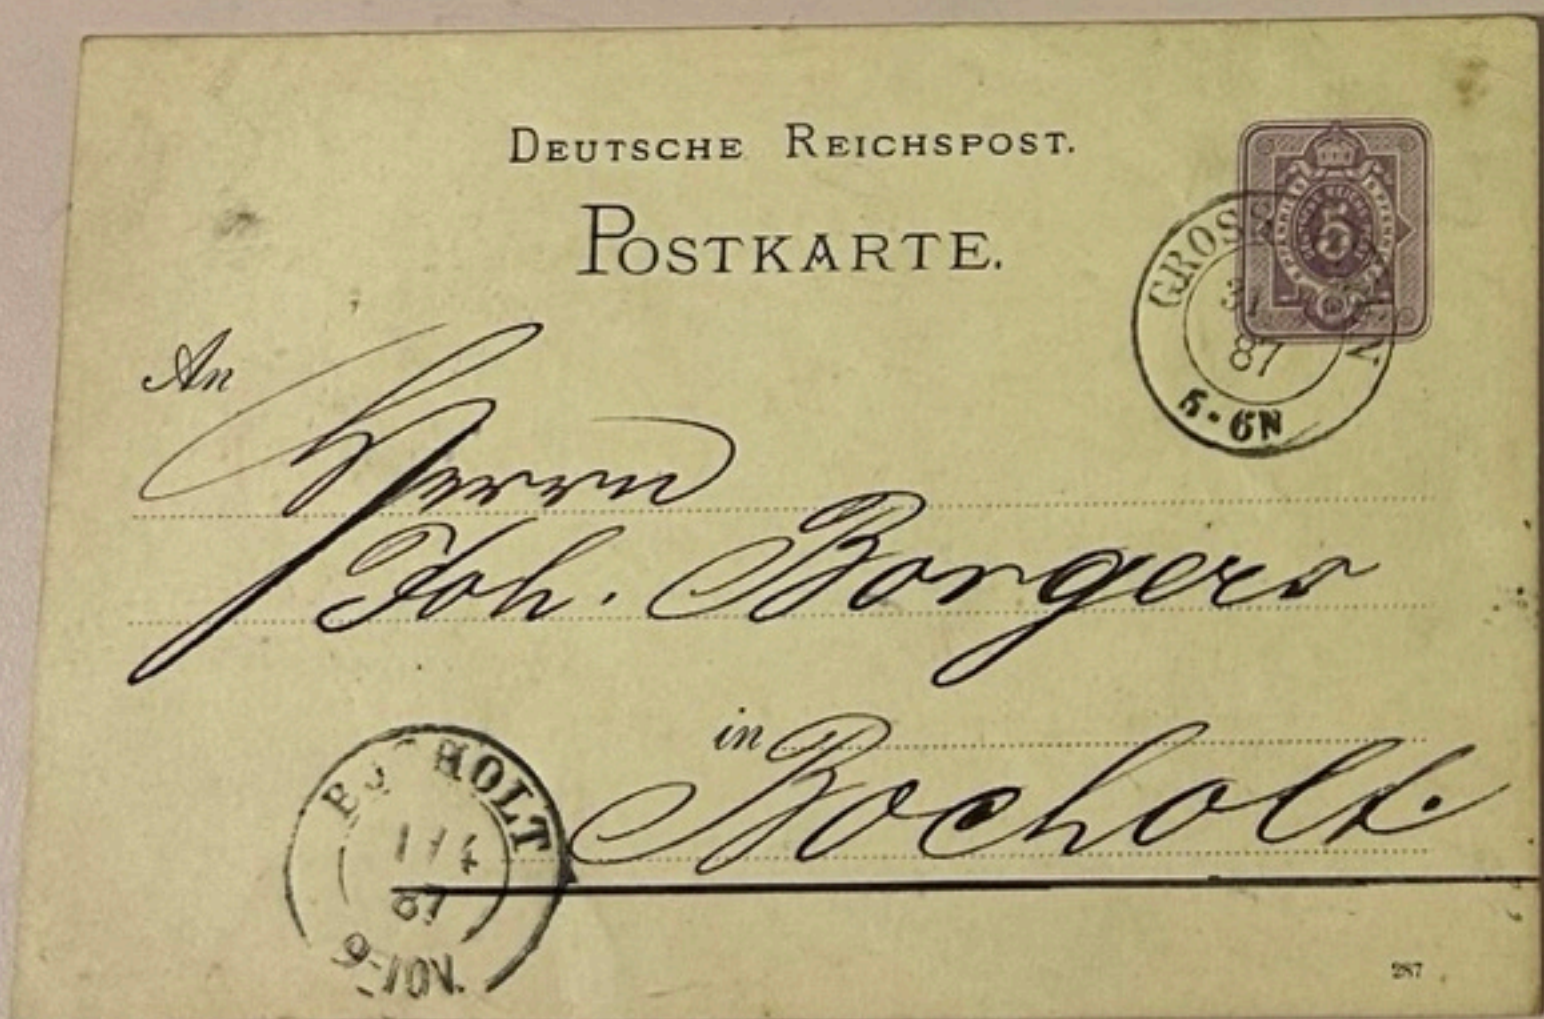 DEUTSCHE REICHSPOST.
POSTKARTE.
5
GROSS
87
5-6N
An
Herrn
Joh. Borgers
in
Bocholt.
BOCHOLT
1/4
87
9-10V.
287